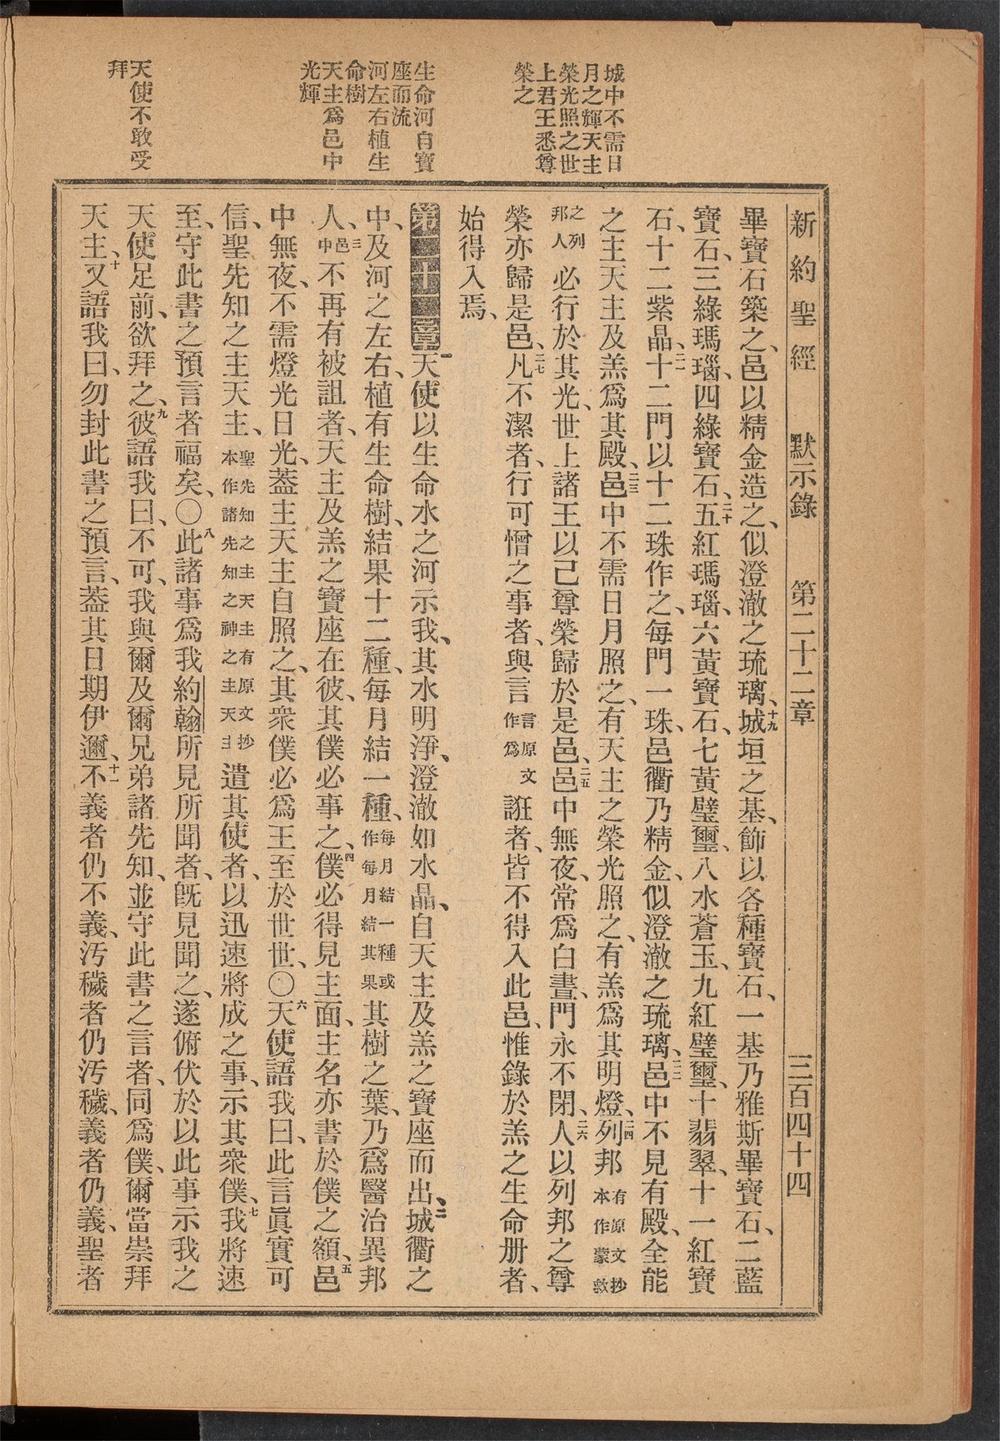 城中不需日
月之輝天主
榮光照之世
上君王悉尊
榮之
生命河自寶
座而流
河左右植生
命樹
天主爲邑中
光輝
天使不敢受
拜
新約聖經 默示錄 第二十二章 三百四十四
畢寶石築之、邑以精金造之、似澄澈之琉璃、十九城垣之基、飾以各種寶石、一基乃雅斯畢寶石、二藍
寶石、三綠瑪瑙、四綠寶石、二十五紅瑪瑙、六黃寶石、七黃璧璽、八水蒼玉、九紅璧璽、十翡翠、十一紅寶
石、十二紫晶、二一十二門以十二珠作之、每門一珠、邑衢乃精金、似澄澈之琉璃、二二邑中不見有殿、全能
之主天主及羔爲其殿、二三邑中不需日月照之、有天主之榮光照之、有羔爲其明燈、二四列邦有原文抄本作蒙救
之列邦人必行於其光、世上諸王以己尊榮歸於是邑、二五邑中無夜、常爲白晝、門永不閉、二六人以列邦之尊
榮亦歸是邑、二七凡不潔者、行可憎之事者、與言言原文作爲誑者、皆不得入此邑、惟錄於羔之生命册者、
始得入焉、
第二十二章一天使以生命水之河示我、其水明淨、澄澈如水晶、自天主及羔之寶座而出、二城衢之
中、及河之左右、植有生命樹、結果十二種、每月結一種、每月結一種或作每月結其果其樹之葉、乃爲醫治異邦
人、三邑中不再有被詛者、天主及羔之寶座在彼、其僕必事之、四僕必得見主面、主名亦書於僕之額、五邑
中無夜、不需燈光日光、蓋主天主自照之、其衆僕必爲王至於世世、〇六天使語我曰、此言眞實可
信、聖先知之主天主、聖先知之主天主有原文抄本作諸先知之神之主天主遣其使者、以迅速將成之事、示其衆僕、七我將速
至、守此書之預言者福矣、〇八此諸事爲我約翰所見所聞者、旣見聞之、遂俯伏於以此事示我之
天使足前、欲拜之、九彼語我曰、不可、我與爾及爾兄弟諸先知、並守此書之言者、同爲僕、爾當崇拜
天主、十又語我曰、勿封此書之預言、蓋其日期伊邇、十一不義者仍不義、汚穢者仍汚穢、義者仍義、聖者